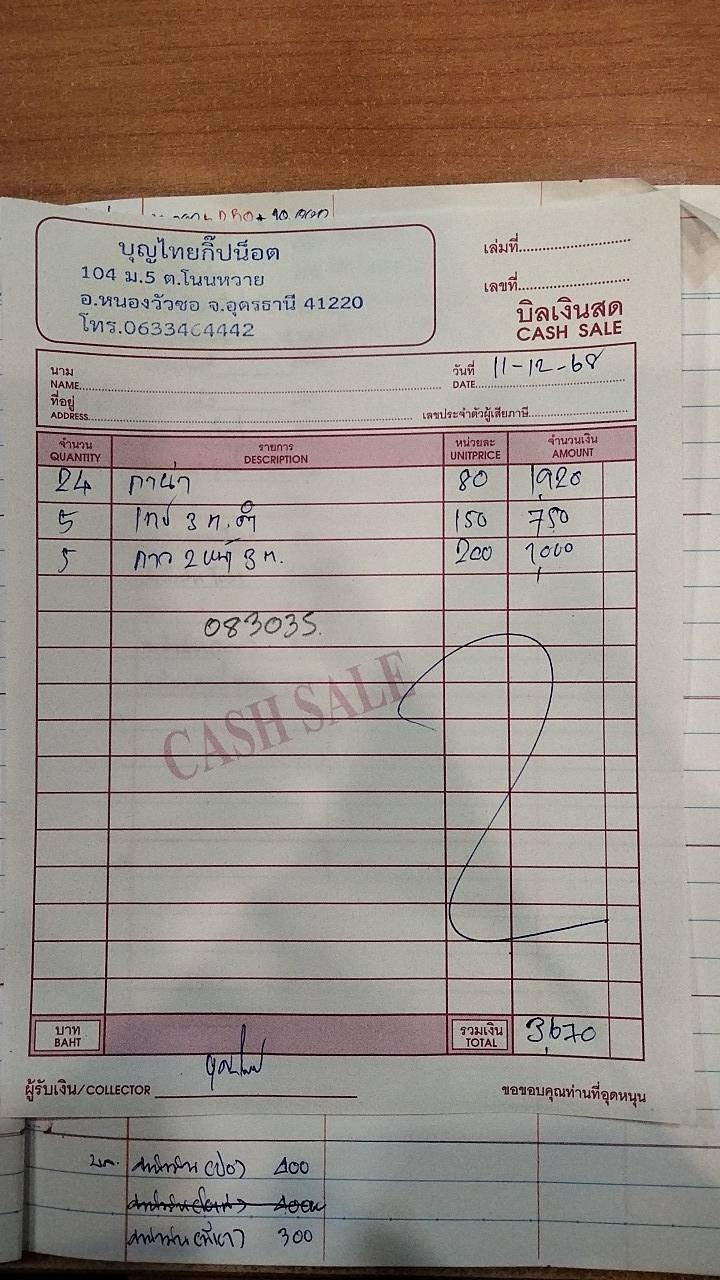 บุญไทยกิ๊ปน็อต
104 ม.5 ต.โนนหวาย
อ.หนองวัวซอ จ.อุดรธานี 41220
โทร.0633464442
เล่มที่
เลขที่
บิลเงินสด
CASH SALE
นาม
NAME
วันที่ 11-12-68
DATE
ที่อยู่
ADDRESS
เลขประจำตัวผู้เสียภาษี
จำนวน รายการ หน่วยละ จำนวนเงิน
QUANTITY DESCRIPTION UNITPRICE AMOUNT
24 กาน่า 80 1,920
5 เทป 3 ห.ดำ 150 750
5 กาว 2 หน้า 3 ห. 200 1,000
083035.
CASH SALE
บาท รวมเงิน 3,670
BAHT TOTAL
ผู้รับเงิน/COLLECTOR
ขอขอบคุณท่านที่อุดหนุน
400
300